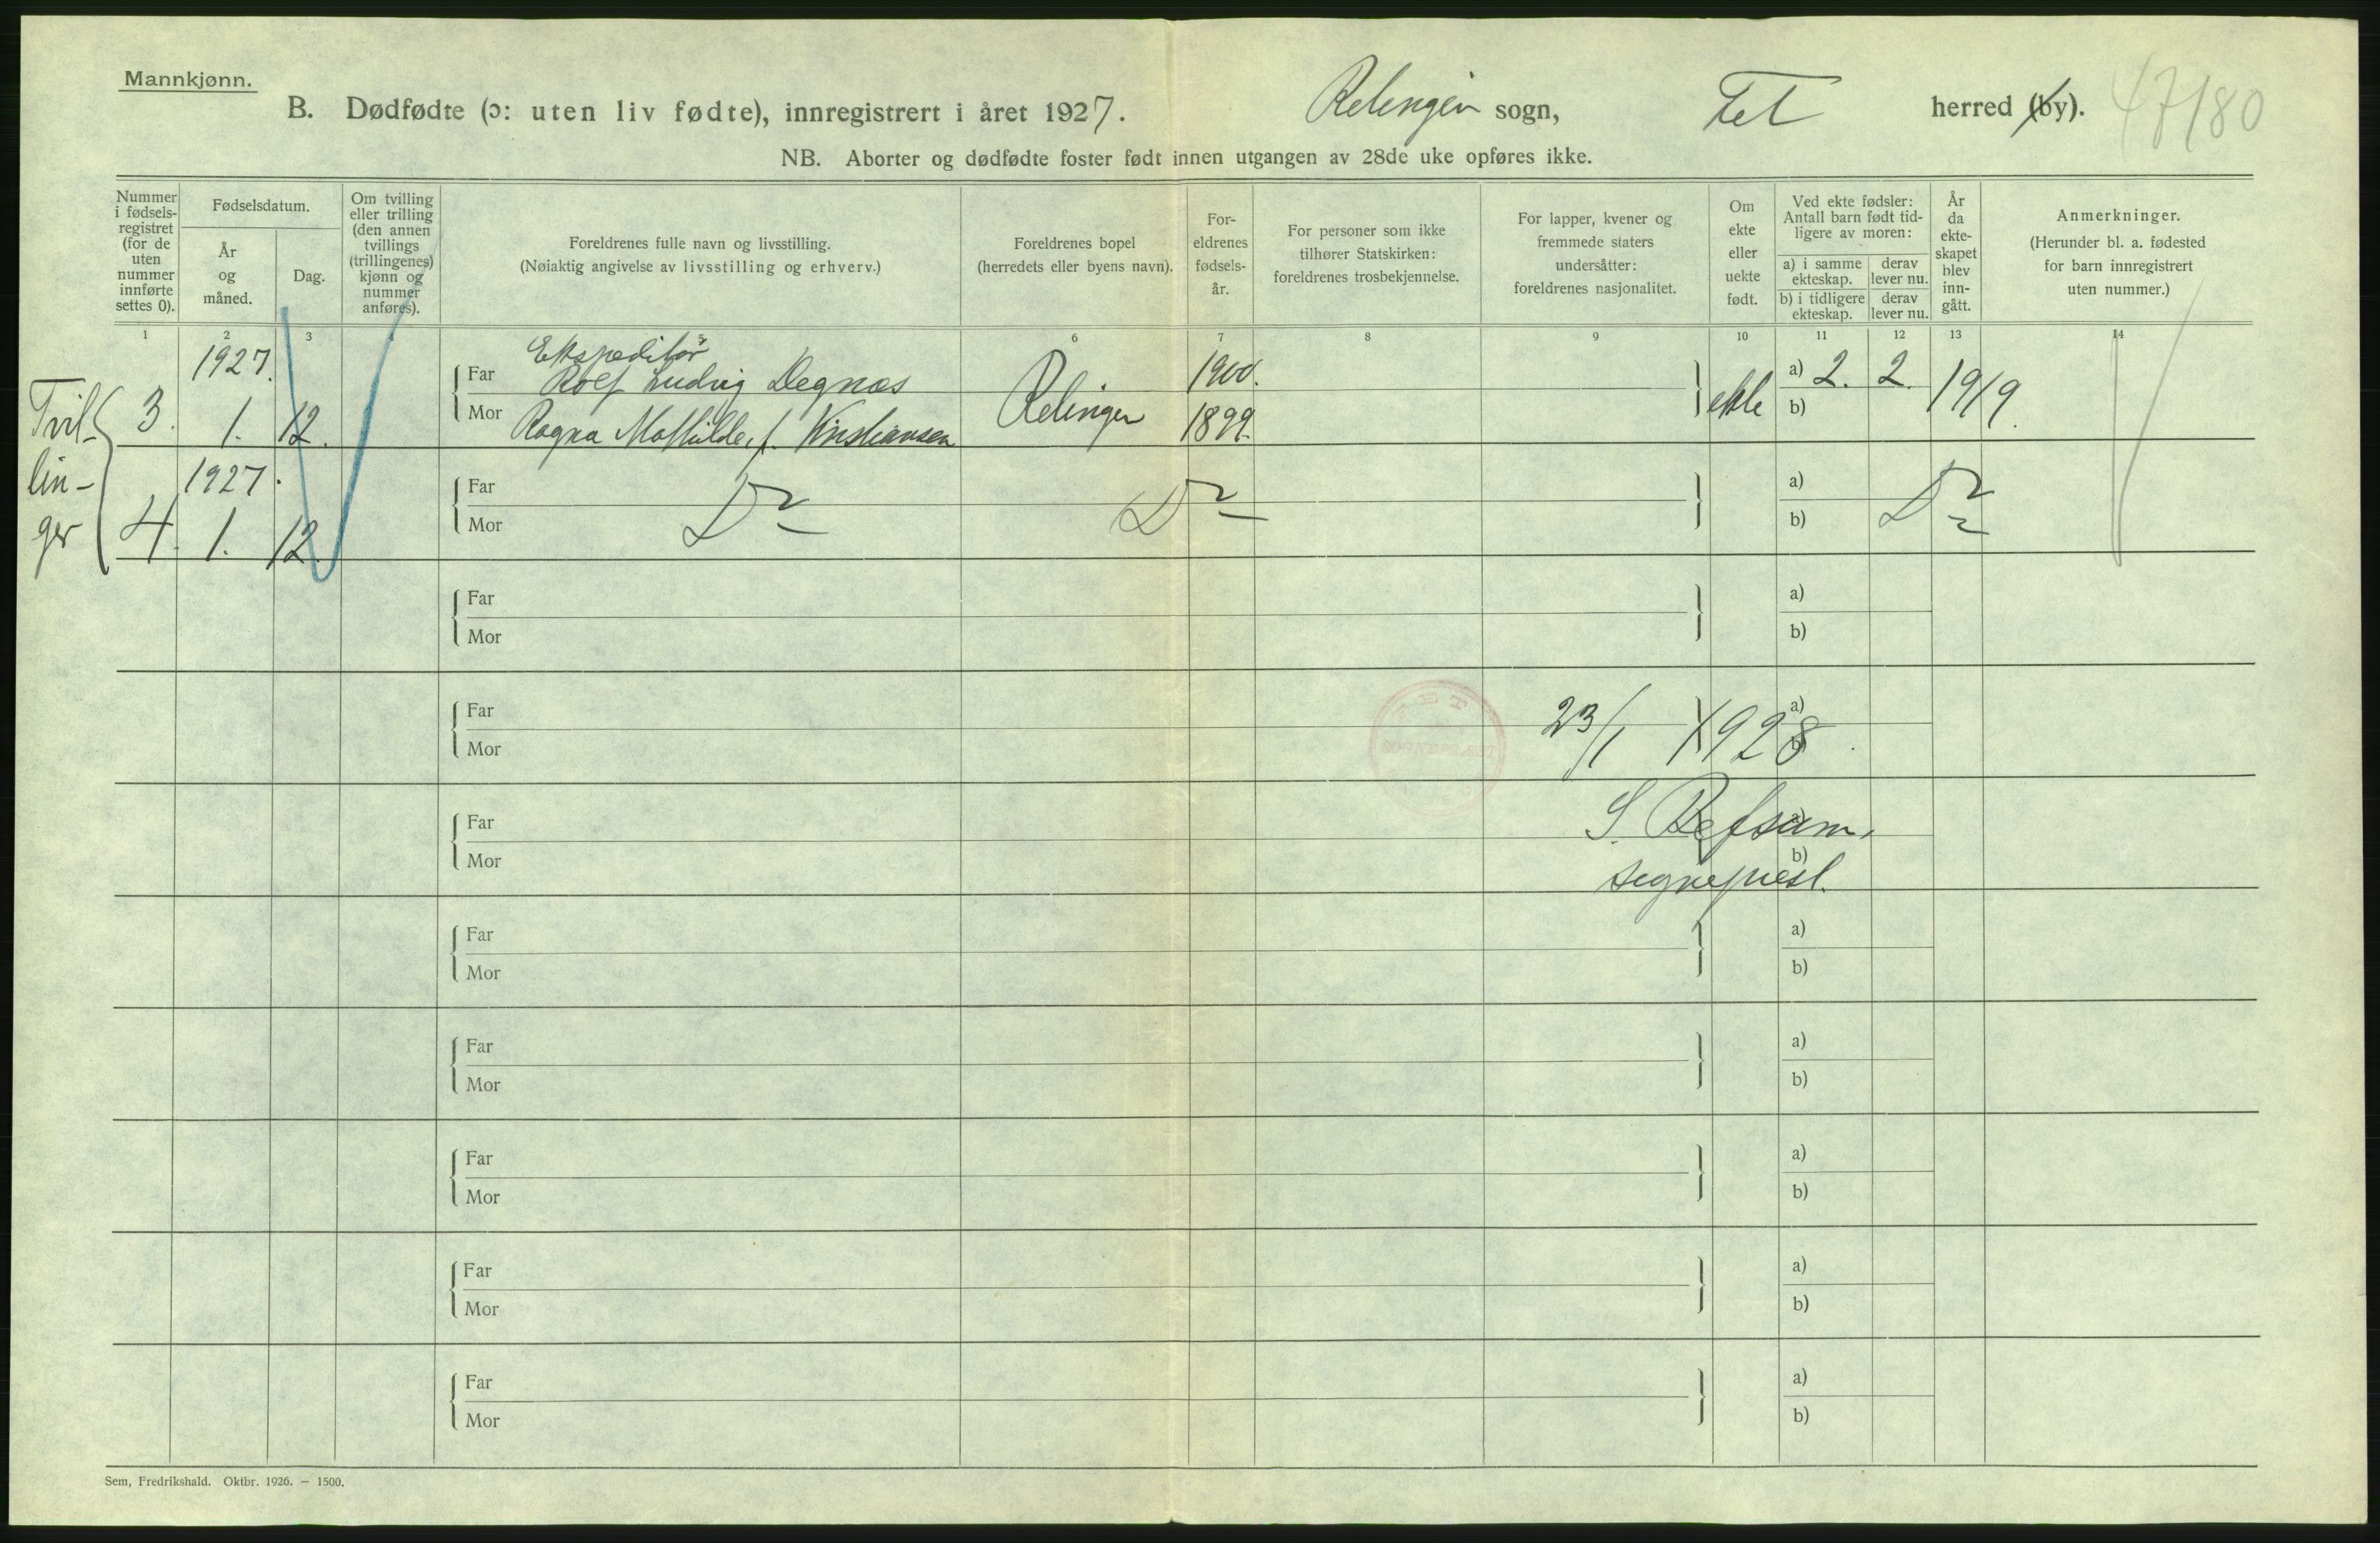 Mannkjønn.
B. Dødfødte (ɔ: uten liv fødte), innregistrert i året 1927. Relingen sogn, Fet herred (by). 47/80
NB. Aborter og dødfødte foster født innen utgangen av 28de uke opføres ikke.
Nummer
i fødsels-
registret
(for de
uten
nummer
innførte
settes 0).
Fødselsdatum.
År
og
måned.
Dag.
Om tvilling
eller trilling
(den annen
tvillings
(trillingenes)
kjønn og
nummer
anføres).
Foreldrenes fulle navn og livsstilling.
(Nøiaktig angivelse av livsstilling og erhverv.)
Foreldrenes bopel
(herredets eller byens navn).
For-
eldrenes
fødsels-
år.
For personer som ikke
tilhører Statskirken:
foreldrenes trosbekjennelse.
For lapper, kvener og
fremmede staters
undersåtter:
foreldrenes nasjonalitet.
Om
ekte
eller
uekte
født.
Ved ekte fødsler:
Antall barn født tid-
ligere av moren:
a) i samme
ekteskap.
derav
lever nu.
b) i tidligere
ekteskap.
derav
lever nu.
År
da
ekte-
skapet
blev
inn-
gått.
Anmerkninger.
(Herunder bl. a. fødested
for barn innregistrert
uten nummer.)
1 2 3 4 6 7 8 9 10 11 12 13 14
Tvil-
lin-
ger
3. 1927. 1. 12.
Ekspeditør
Far Rolf Ludvig Degnæs
Mor Ragna Mathilde, f. Kristiansen
Relingen
1900.
1899.
ekte
a) 2. 2.
b)
1919.
4. 1927. 1. 12.
Far
Mor
Do Do
a)
b)
Do
Far
Mor
a)
b)
Far
Mor
FET
23/1 1928.
a)
b)
Far
Mor
S. Refsum,
sogneprest.
b)
Far
Mor
a)
b)
Far
Mor
a)
b)
Far
Mor
a)
b)
Far
Mor
a)
b)
Far
Mor
a)
b)
Sem, Fredrikshald. Oktbr. 1926. – 1500.